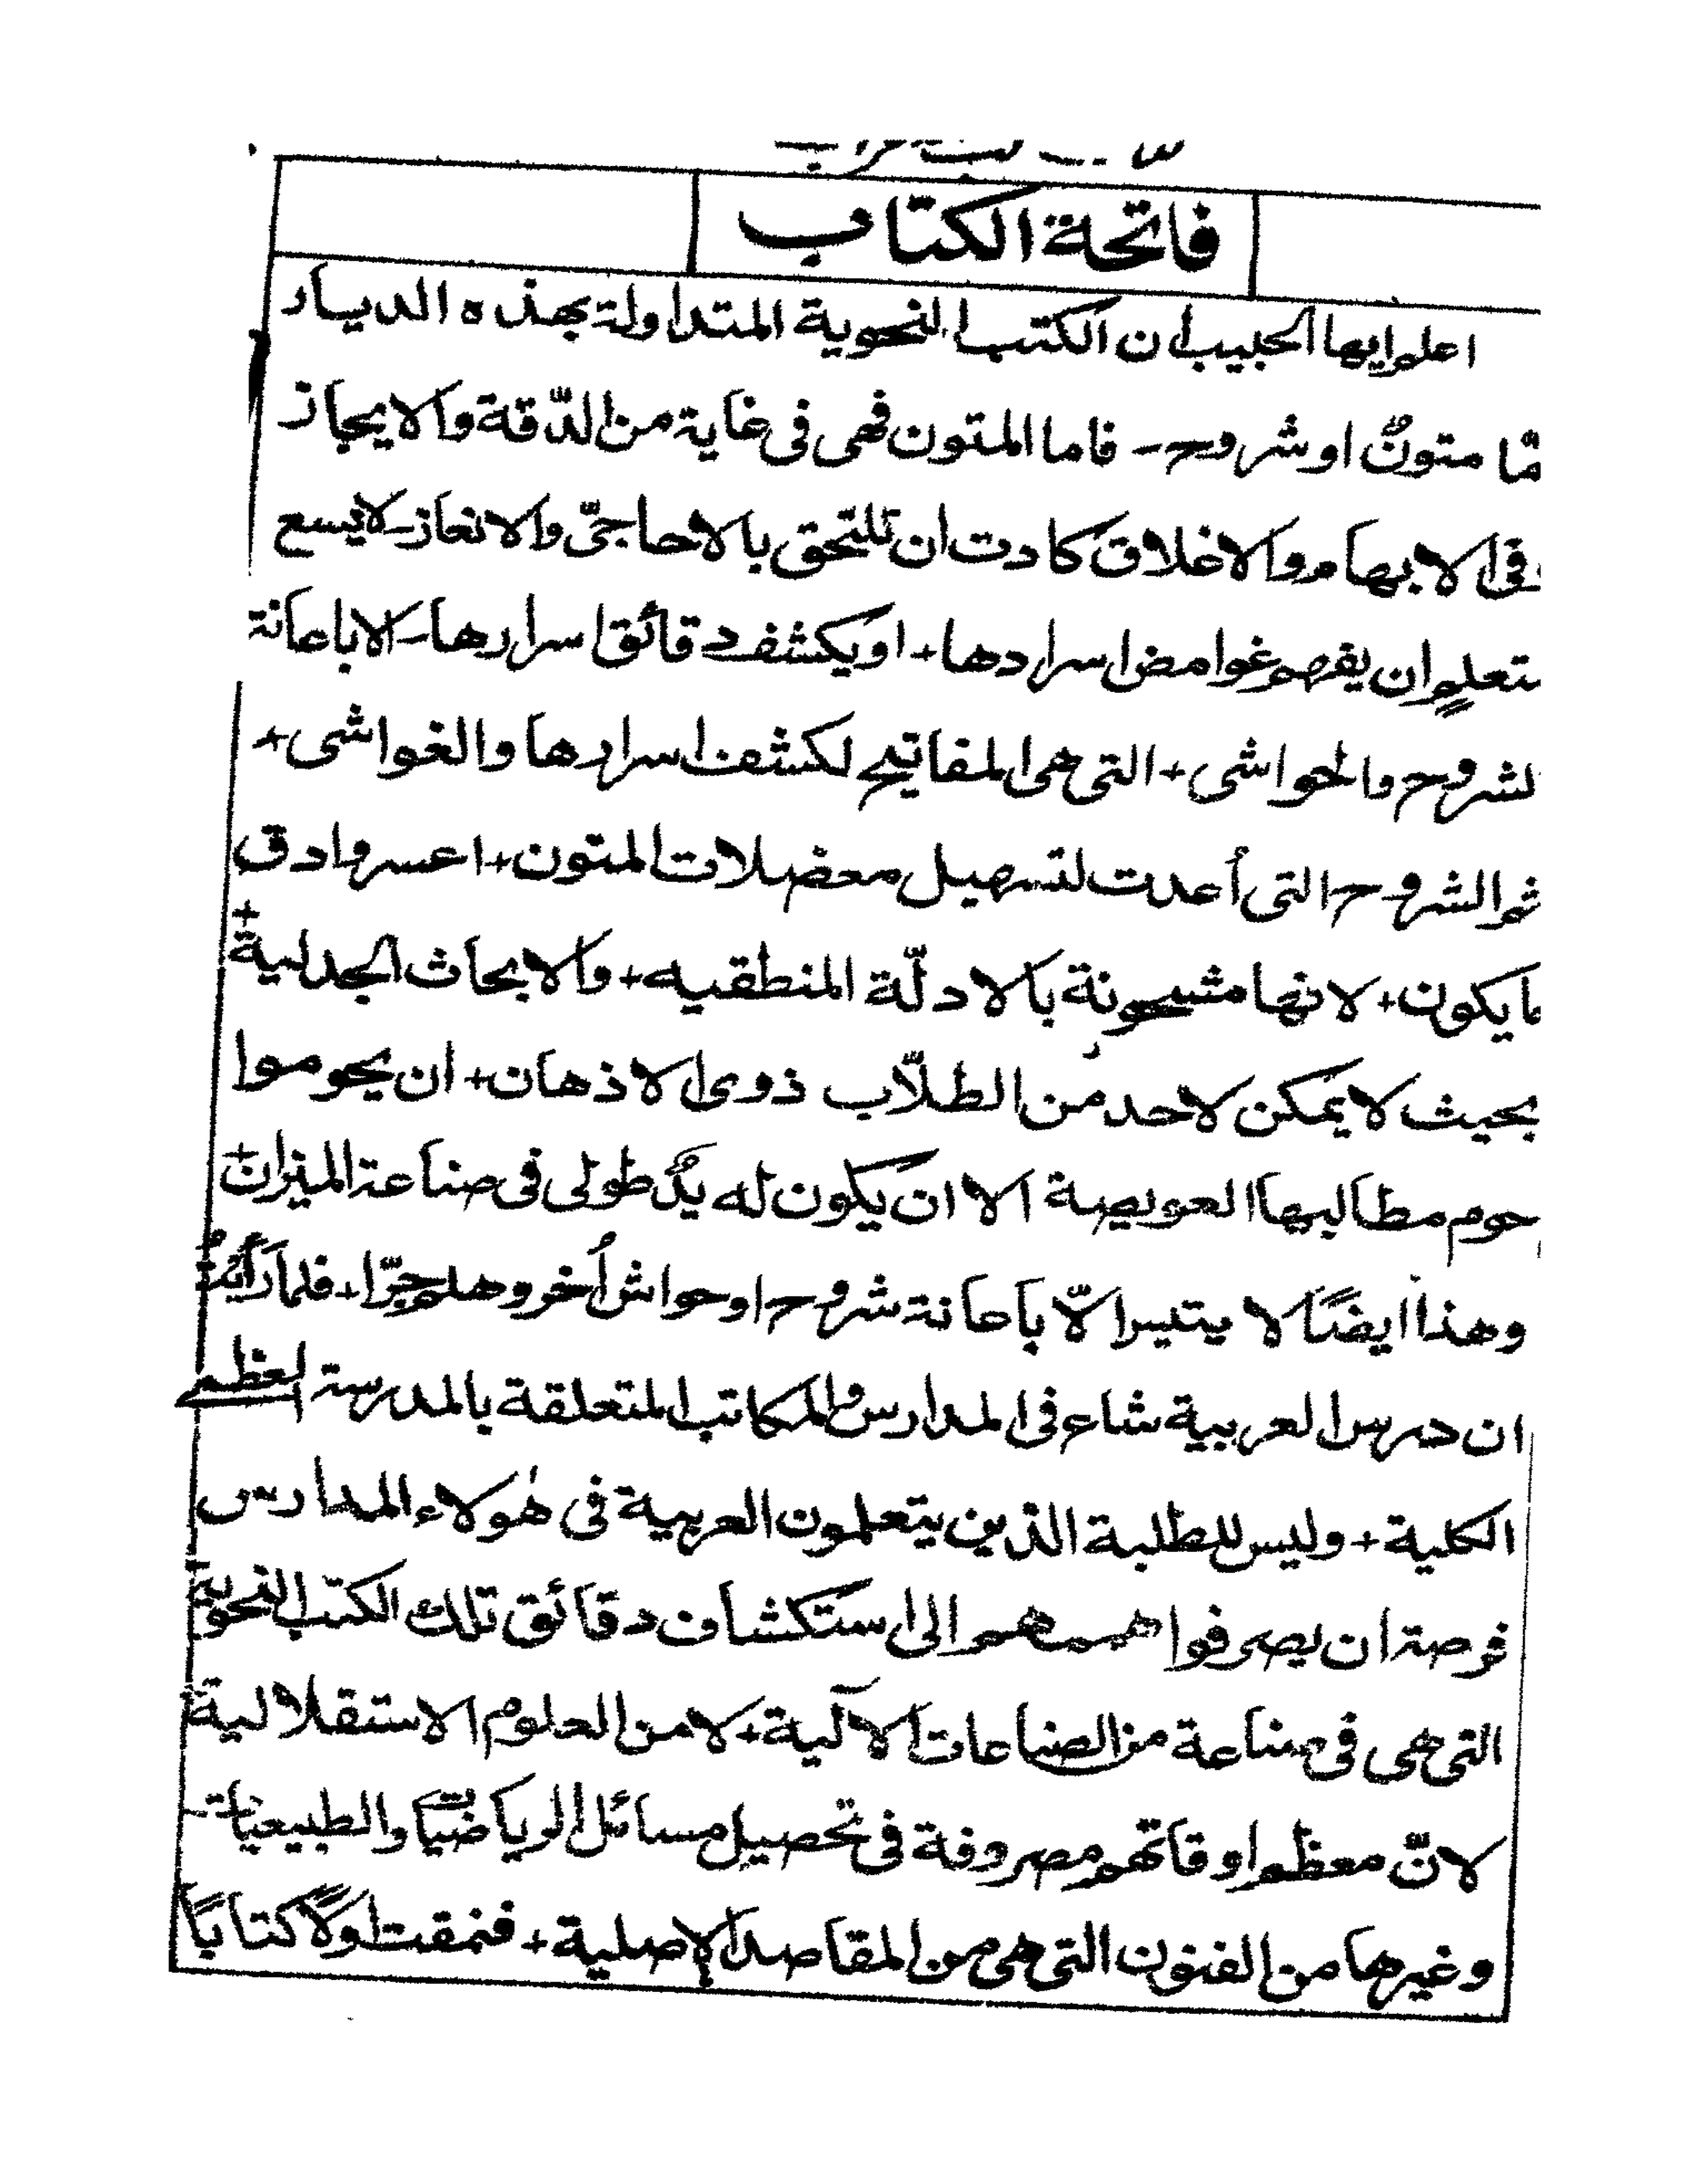 فاتحة الكتاب
اعلم ايها الحبيب ان الكتب النحوية المتداولة بهذه الديار
مّا متونٌ او شروح - فاما المتون فهى فى غاية من الدّقة والايجاز
وفى الابهام والاغلاق كادت ان تلتحق بالاحاجىّ والانغاز - لايسع
متعلمٍ ان يفهم غوامض اسرارها + او يكشف دقائق اسرارها - الا باعانة
لشروح والحواشى + التى هى المفاتيح لكشف اسرارها والغواشى +
ثم الشروح التى أعدت لتسهيل معضلات المتون + اعسر وادق
ما يكون + لانها مشحونة بالادلّة المنطقيه + والابحاث الجدلية +
بحيث لا يمكن لاحد من الطلّاب ذوى الاذهان + ان يحوموا
حوم مطالبها العويصة الا ان يكون له يدٌ طولى فى صناعة الميزان +
وهذا ايضًا لا يتيسر الّا باعانة شروح او حواش أُخر وهلم جرّا + فلما رأيتُ
ان درس العربية شاع فى المدارس والمكاتب المتعلقة بالمدرسة العظمى
الكلية + وليس للطلبة الذين يتعلمون العربية فى هٰولاء المدارس
فرصة ان يصرفوا هممهم الى استكشاف دقائق تلك الكتب النحوية
التى هى فى صناعة من الصناعات الآلية + لا من العلوم الاستقلالية
لانّ معظم اوقاتهم مصروفة فى تحصيل مسائل الرياضيات والطبيعيات -
وغيرها من الفنون التى هى من المقاصد الاصلية + فنمقت اولًا كتابًا